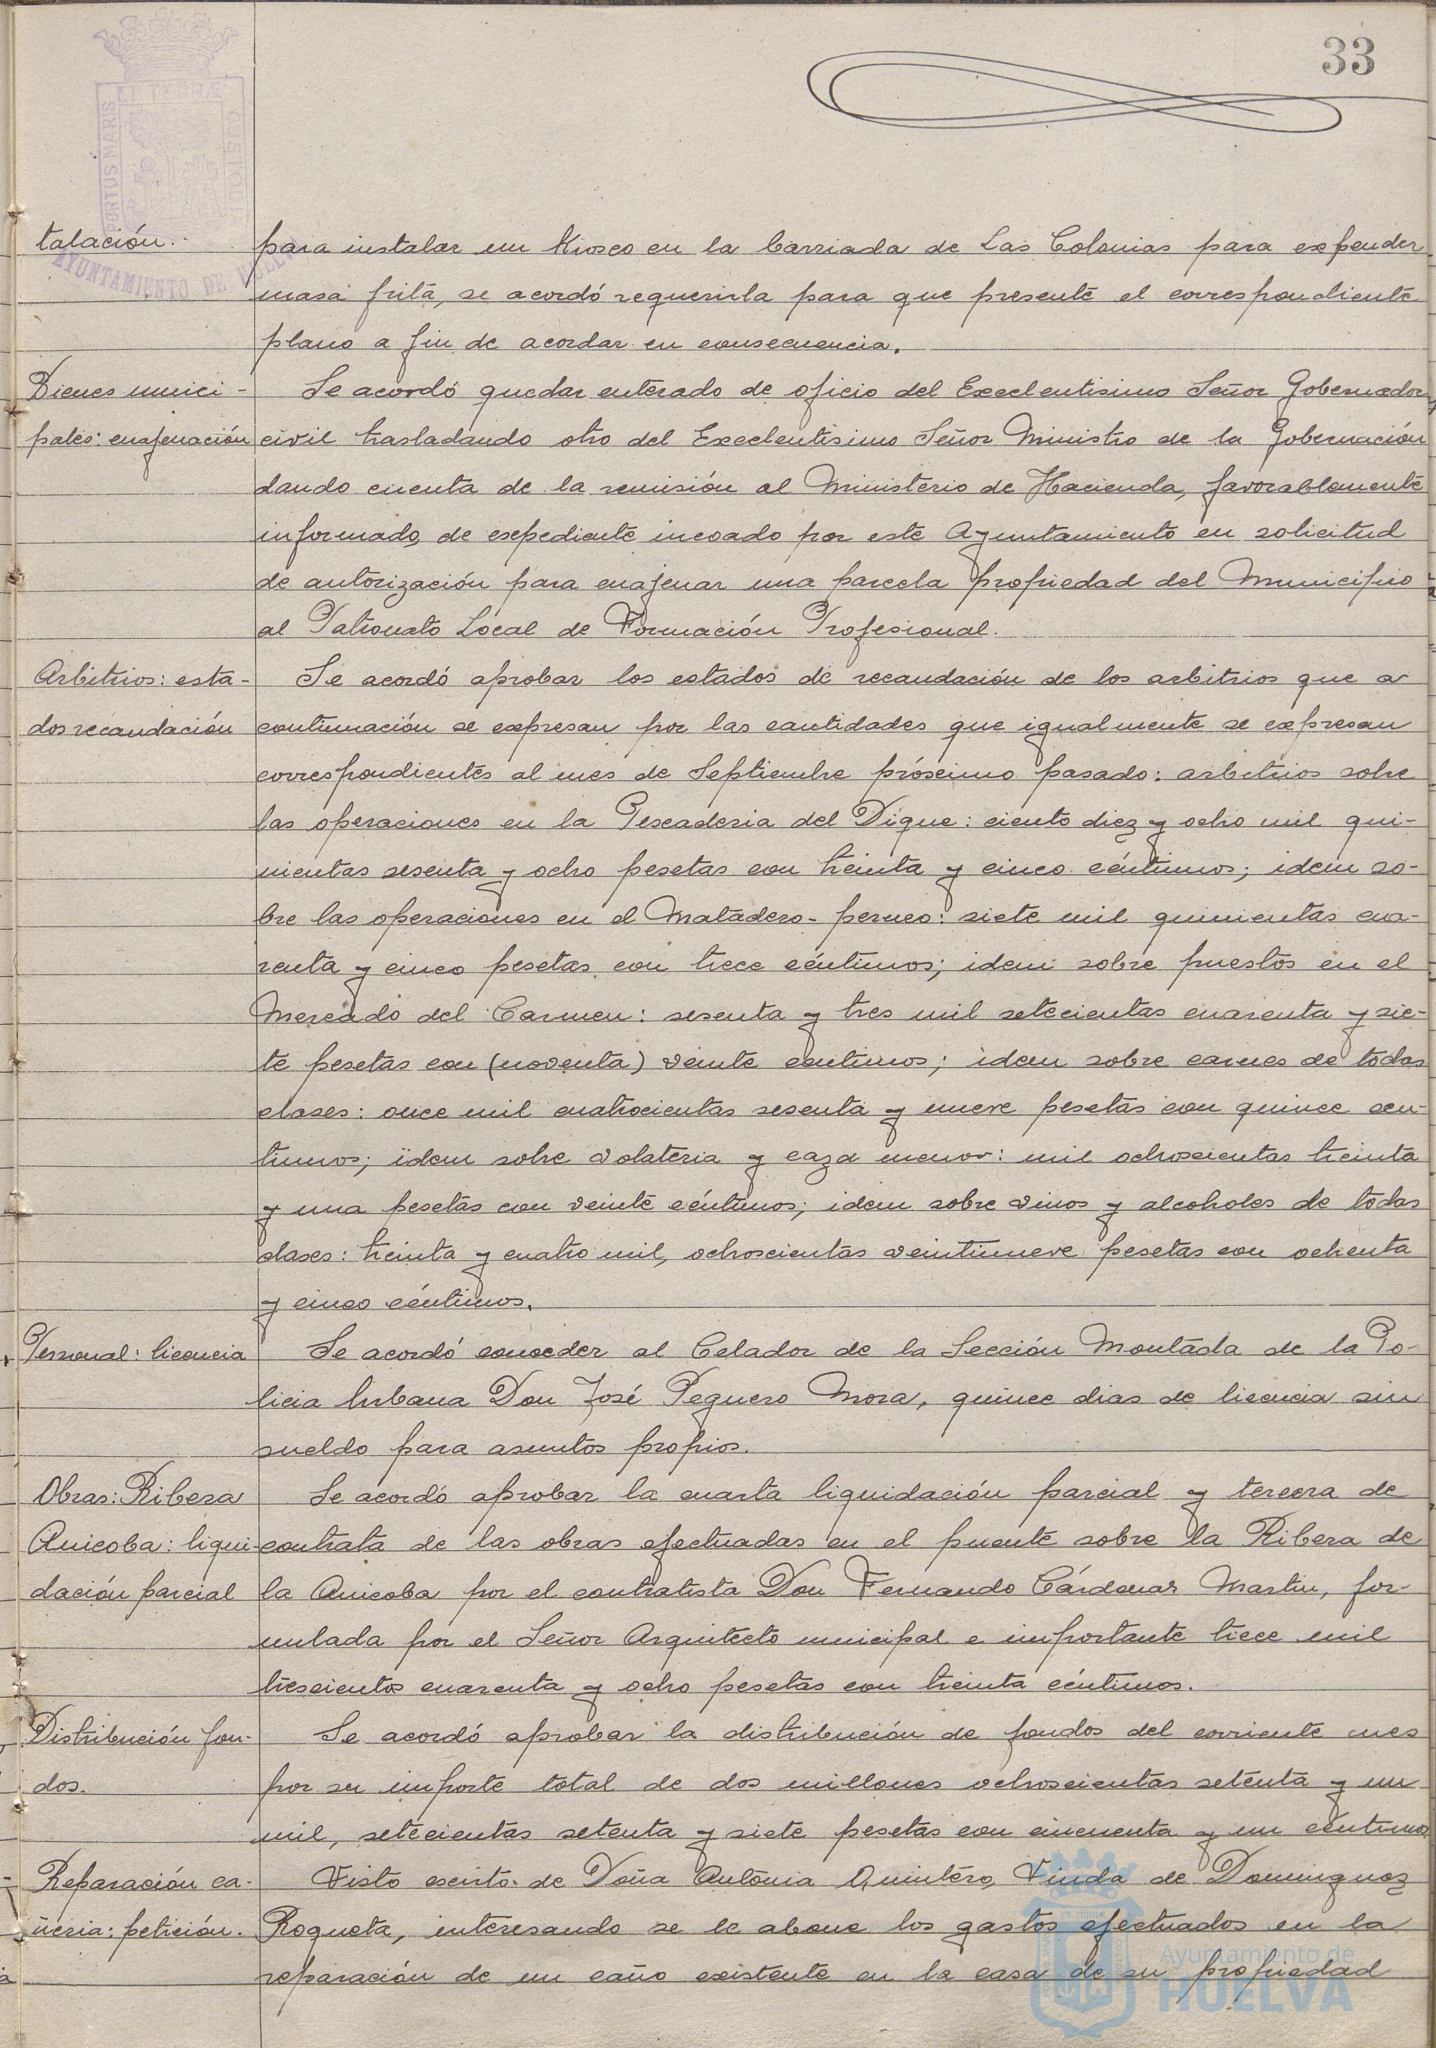 33
PORTUS MARIS ET TERRÆ CUSTODIA
AYUNTAMIENTO DE HUELVA
talación.. para instalar un Kiosco en la barriada de Las Colonias para expender
masa frita, se acordó requerirla para que presente el correspondiente
plano a fin de acordar en consecuencia.
Bienes munici- Se acordó quedar enterado de oficio del Excelentisimo Señor Gobernador
pales: enajenación civil trasladando otro del Excelentisimo Señor Ministro de la Gobernación
dando cuenta de la remisión al Ministerio de Hacienda, favorablemente
informado, de expediente incoado por este Ayuntamiento en solicitud
de autorización para enajenar una parcela propiedad del Municipio
al Patronato Local de Formación Profesional.
Arbitrios: esta- Se acordó aprobar los estados de recaudación de los arbitrios que a
dos recaudación continuación se expresan por las cantidades que igualmente se expresan
correspondientes al mes de Septiembre próximo pasado: arbitrios sobre
las operaciones en la Pescaderia del Dique: ciento diez y ocho mil qui-
nientas sesenta y ocho pesetas con treinta y cinco céntimos; idem so-
bre las operaciones en el Matadero-perneo: siete mil quinientas cua-
renta y cinco pesetas con trece céntimos; idem sobre puestos en el
Mercado del Carmen: sesenta y tres mil setecientas cuarenta y sie-
te pesetas con (noventa) veinte centimos; idem sobre carnes de todas
clases: once mil cuatrocientas sesenta y nueve pesetas con quince cen-
timos; idem sobre volateria y caza menor: mil ochoscientas treinta
y una pesetas con veinte céntimos; idem sobre vinos y alcoholes de todas
clases: treinta y cuatro mil, ochoscientas veintinueve pesetas con ochenta
y cinco céntimos.
Personal: licencia Se acordó conceder al Celador de la Sección Montada de la Po-
licia Urbana Don José Peguero Mora, quince dias de licencia sin
sueldo para asuntos propios.
Obras: Ribera Se acordó aprobar la cuarta liquidación parcial y tercera de
Anicoba: liqui- contrata de las obras efectuadas en el puente sobre la Ribera de
dación parcial la Anicoba por el contratista Don Fernando Cárdenas Martin, for-
mulada por el Señor Arquitecto municipal e importante trece mil
trescientos cuarenta y ocho pesetas con treinta céntimos.
Distribución fon- Se acordó aprobar la distribución de fondos del corriente mes
dos. por su importe total de dos millones ochoscientas setenta y un
mil, setecientas setenta y siete pesetas con cincuenta y un céntimos
Reparación ca- Visto escrito de Doña Antonia Quintero, Viuda de Dominguez
ñeria: petición. Roqueta, interesando se le abone los gastos efectuados en la
reparación de un caño existente en la casa de su propiedad
Ayuntamiento de
HUELVA